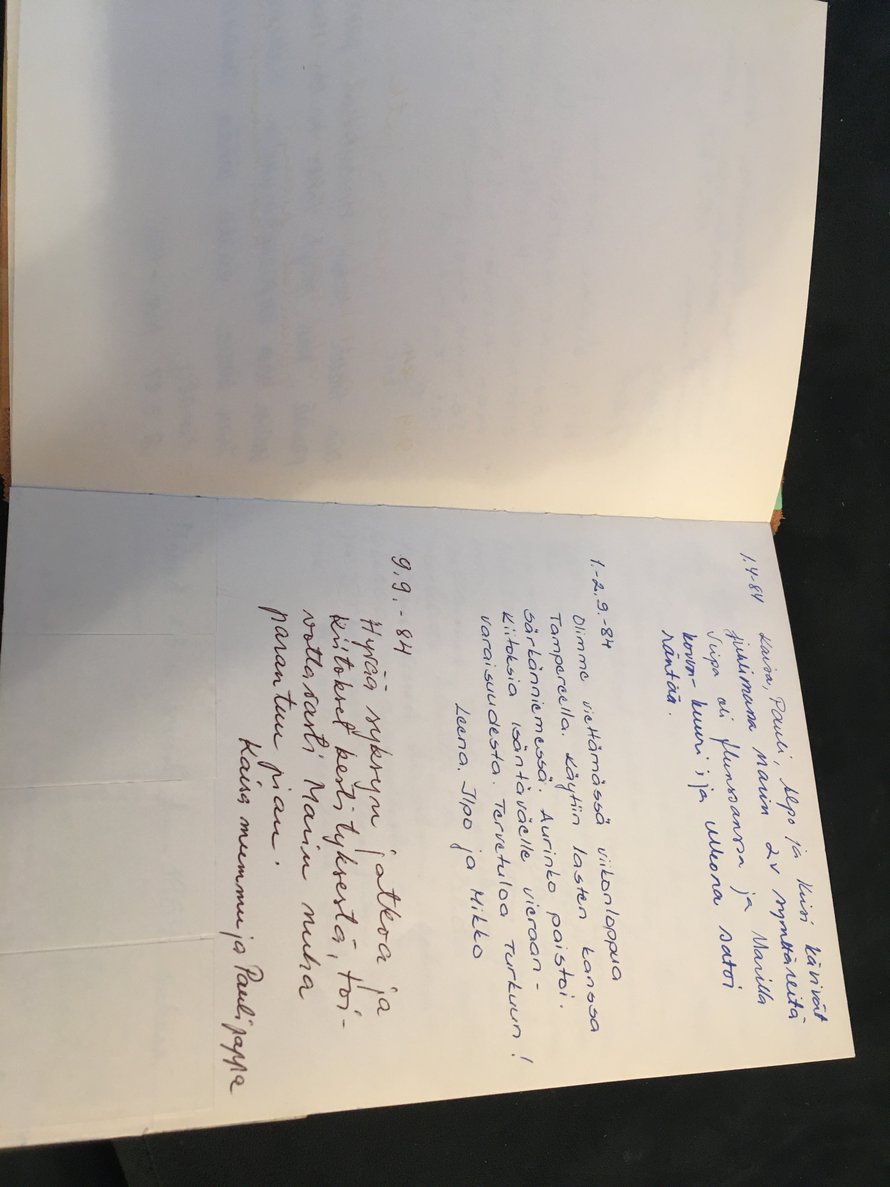 1.4-84 Kaisa, Pauli, Arpo ja Kirsi kävivät
juhlimassa Marin 2v synttäreitä
Viipa oli flunssassa ja Marilla
korva-kuuri ja ulkona satoi
räntää.
1.-2.9.-84
Olimme viettämässä viikonloppua
Tampereella. Käytiin lasten kanssa
Särkänniemessä. Aurinko paistoi.
Kiitoksia isäntäväelle vieraan-
varaisuudesta. Tervetuloa Turkuun!
Leena, Ilpo ja Mikko
9.9.-84
Hyvää syksyn jatkoa ja
kiitokset kestityksestä, toi-
vottavasti Marin nuha
parantuu pian.
Kaisa mummu ja Pauli pappa